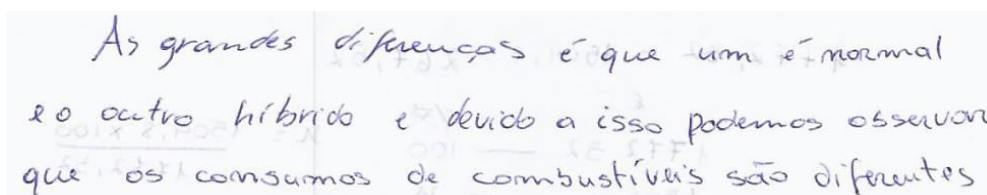 As grandes diferenças é que um é normal
e o outro híbrido e devido a isso podemos observar
que os consumos de combustíveis são diferentes